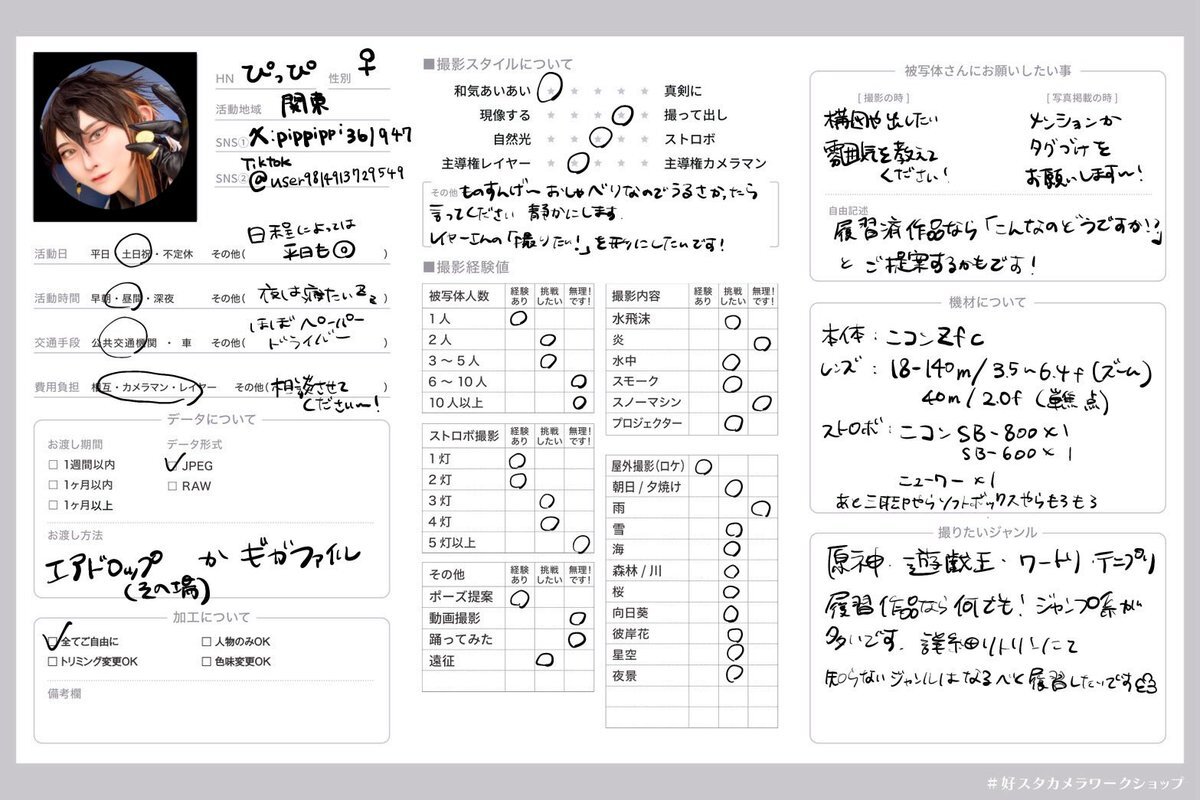 HN ぴっぴ 性別 ♀
活動地域 関東
SNS① X:pippippi361947
SNS② Tiktok
@user9814913729549
活動日 平日・土日祝・不定休 その他( 日程によっては平日も◎ )
活動時間 早朝・昼間・深夜 その他( 夜は寝たいzz )
交通手段 公共交通機関・車 その他( ほぼペーパードライバー )
費用負担 相互・カメラマン・レイヤー その他( 相談させてください〜! )
データについて
お渡し期間 データ形式
□ 1週間以内 ✓JPEG
□ 1ヶ月以内 □ RAW
□ 1ヶ月以上
お渡し方法
エアドロップ か ギガファイル
(その場)
加工について
✓全てご自由に □人物のみOK
□トリミング変更OK □色味変更OK
備考欄
■撮影スタイルについて
和気あいあい ○ ★ ★ ★ ★ 真剣に
現像する ★ ★ ★ ○ ★ 撮って出し
自然光 ★ ★ ○ ★ ★ ストロボ
主導権レイヤー ★ ○ ★ ★ ★ 主導権カメラマン
その他 ものすんげ〜おしゃべりなのでうるさかったら
言ってください 静かにします.
レイヤーさんの「撮りたい!」を形にしたいです!
■撮影経験値
被写体人数 経験あり 挑戦したい 無理!です!
1人 ○
2人 ○
3〜5人 ○
6〜10人 ○
10人以上 ○
ストロボ撮影 経験あり 挑戦したい 無理!です!
1灯 ○
2灯 ○
3灯 ○
4灯 ○
5灯以上 ○
その他 経験あり 挑戦したい 無理!です!
ポーズ提案 ○
動画撮影 ○
踊ってみた ○
遠征 ○
撮影内容 経験あり 挑戦したい 無理!です!
水飛沫 ○
炎 ○
水中 ○
スモーク ○
スノーマシン ○
プロジェクター ○
屋外撮影(ロケ) ○
朝日/夕焼け ○
雨 ○
雪 ○
海 ○
森林/川 ○
桜 ○
向日葵 ○
彼岸花 ○
星空 ○
夜景 ○
被写体さんにお願いしたい事
[撮影の時] [写真掲載の時]
構図や出したい メンションか
雰囲気を教えて タグづけを
ください! お願いします〜!
自由記述
履習済作品なら「こんなのどうですか!?」
とご提案するかもです!
機材について
本体:ニコンZfc
レンズ:18-140m/3.5〜6.4f(ズーム)
40m/2.0f(単焦点)
ストロボ:ニコンSB-800×1
SB-600×1
ニューワー×1
あと三脚やらソフトボックスやらもろもろ
撮りたいジャンル
原神・遊戯王・ワートリ・テニプリ
履習作品なら何でも!ジャンプ系が
多いです. 詳細はリトリンにて
知らないジャンルはなるべく履習したいです
#好スタカメラワークショップ